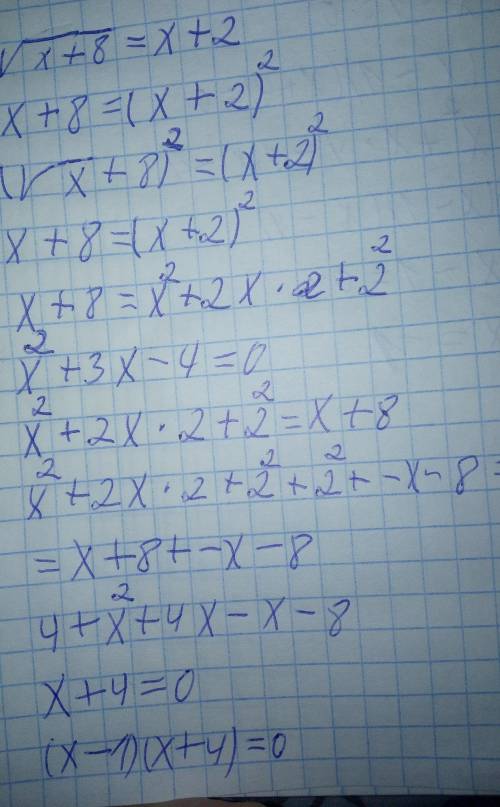 √x+8 = x+2
x+8=(x+2)²
(√x+8)²=(x+2)²
x+8=(x+2)²
x+8=x²+2x·2+2²
x²+3x-4=0
x²+2x·2+2²=x+8
x²+2x·2+2²+2²+-x-8=
=x+8+-x-8
4+x²+4x-x-8
x+4=0
(x-1)(x+4)=0